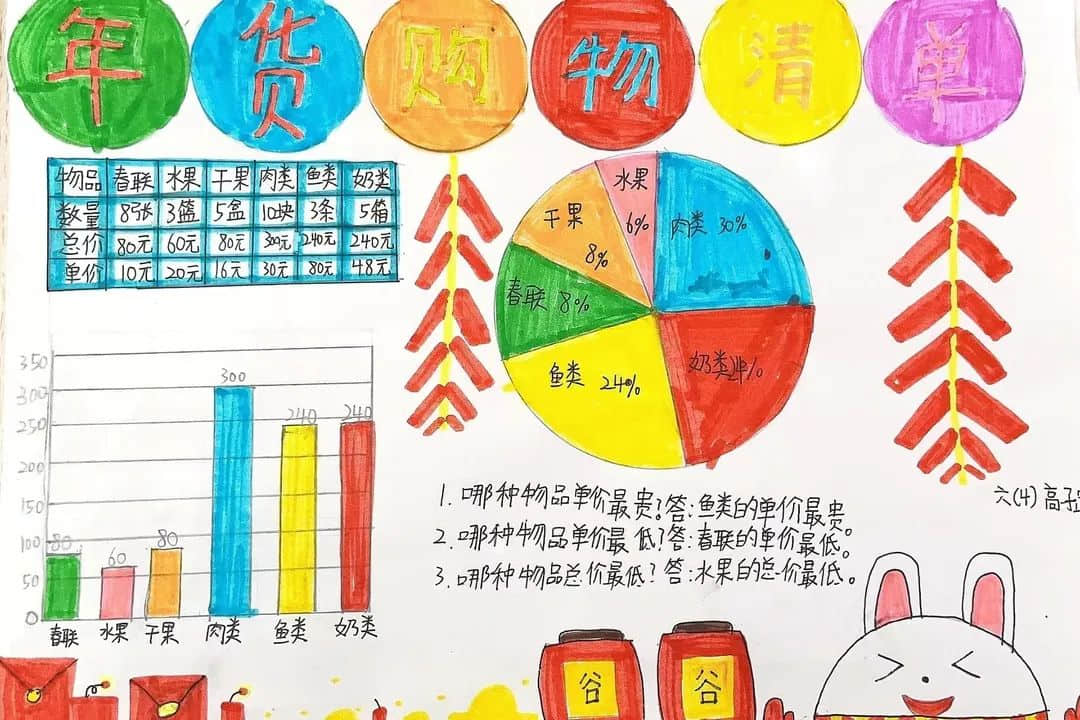 年货购物清单
物品 春联 水果 干果 肉类 鱼类 奶类
数量 8张 3篮 5盒 10块 3条 5箱
总价 80元 60元 80元 300元 240元 240元
单价 10元 20元 16元 30元 80元 48元
水果
6%
干果
8%
肉类 30%
春联 8%
鱼类 24%
奶类24%
350
300
250
200
150
100
50
0
80
60
80
300
240
240
春联 水果 干果 肉类 鱼类 奶类
1. 哪种物品单价最贵?答:鱼类的单价最贵
2. 哪种物品单价最低?答:春联的单价最低。
3. 哪种物品总价最低?答:水果的总价最低。
六(4)高子
谷 谷